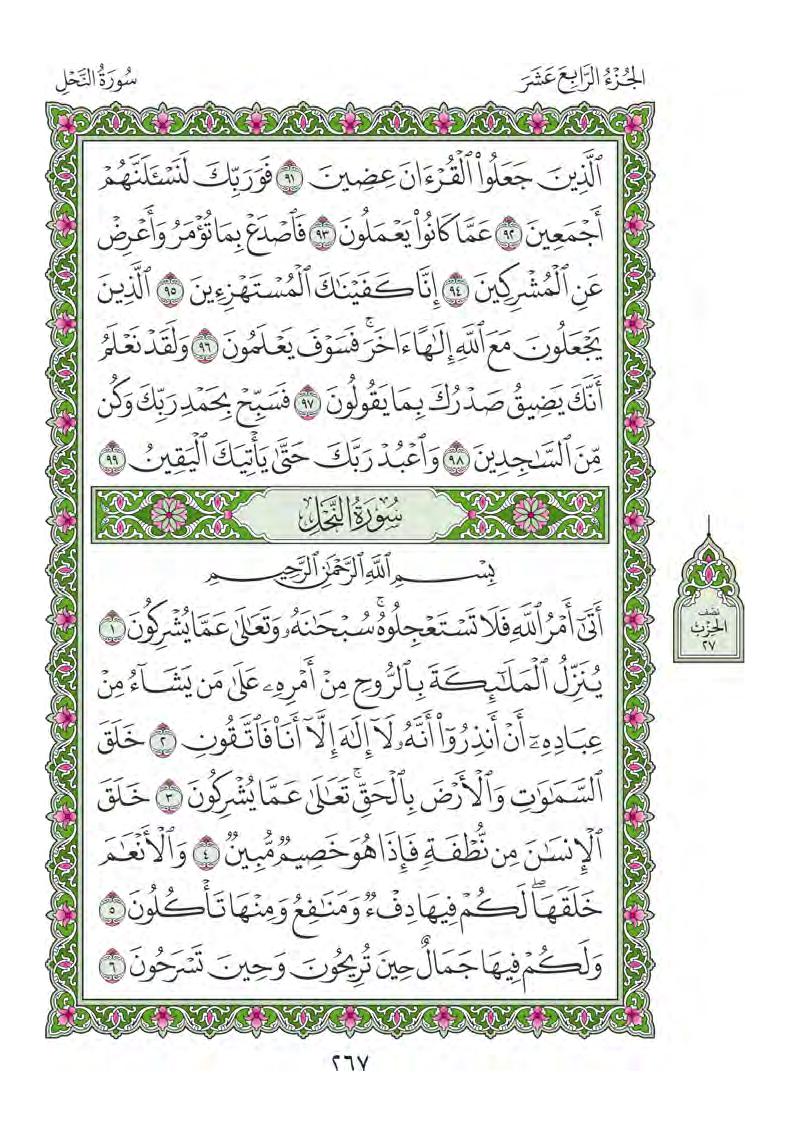 الجُزْءُ الرَّابِعَ عَشَرَ
سُورَةُ النَّحْلِ
ٱلَّذِينَ جَعَلُوا۟ ٱلْقُرْءَانَ عِضِينَ ٩١ فَوَرَبِّكَ لَنَسْـَٔلَنَّهُمْ
أَجْمَعِينَ ٩٢ عَمَّا كَانُوا۟ يَعْمَلُونَ ٩٣ فَٱصْدَعْ بِمَا تُؤْمَرُ وَأَعْرِضْ
عَنِ ٱلْمُشْرِكِينَ ٩٤ إِنَّا كَفَيْنَـٰكَ ٱلْمُسْتَهْزِءِينَ ٩٥ ٱلَّذِينَ
يَجْعَلُونَ مَعَ ٱللَّهِ إِلَـٰهًا ءَاخَرَ ۚ فَسَوْفَ يَعْلَمُونَ ٩٦ وَلَقَدْ نَعْلَمُ
أَنَّكَ يَضِيقُ صَدْرُكَ بِمَا يَقُولُونَ ٩٧ فَسَبِّحْ بِحَمْدِ رَبِّكَ وَكُن
مِّنَ ٱلسَّـٰجِدِينَ ٩٨ وَٱعْبُدْ رَبَّكَ حَتَّىٰ يَأْتِيَكَ ٱلْيَقِينُ ٩٩
سُورَةُ النَّحْلِ
بِسْمِ ٱللَّهِ ٱلرَّحْمَـٰنِ ٱلرَّحِيمِ
أَتَىٰٓ أَمْرُ ٱللَّهِ فَلَا تَسْتَعْجِلُوهُ ۚ سُبْحَـٰنَهُۥ وَتَعَـٰلَىٰ عَمَّا يُشْرِكُونَ ١
يُنَزِّلُ ٱلْمَلَـٰٓئِكَةَ بِٱلرُّوحِ مِنْ أَمْرِهِۦ عَلَىٰ مَن يَشَآءُ مِنْ
عِبَادِهِۦٓ أَنْ أَنذِرُوٓا۟ أَنَّهُۥ لَآ إِلَـٰهَ إِلَّآ أَنَا۠ فَٱتَّقُونِ ٢ خَلَقَ
ٱلسَّمَـٰوَٰتِ وَٱلْأَرْضَ بِٱلْحَقِّ ۚ تَعَـٰلَىٰ عَمَّا يُشْرِكُونَ ٣ خَلَقَ
ٱلْإِنسَـٰنَ مِن نُّطْفَةٍ فَإِذَا هُوَ خَصِيمٌ مُّبِينٌ ٤ وَٱلْأَنْعَـٰمَ
خَلَقَهَا ۗ لَكُمْ فِيهَا دِفْءٌ وَمَنَـٰفِعُ وَمِنْهَا تَأْكُلُونَ ٥
وَلَكُمْ فِيهَا جَمَالٌ حِينَ تُرِيحُونَ وَحِينَ تَسْرَحُونَ ٦
نصف
الحزب
٢٧
٢٦٧